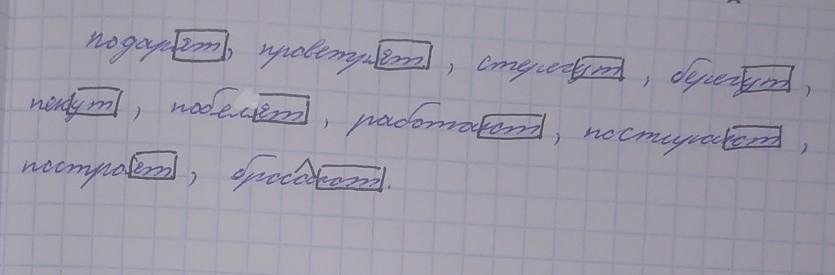 подарят, проветрят, стерегут, берегут,
пекут, побелят, работают, постирают,
построят, бросают.